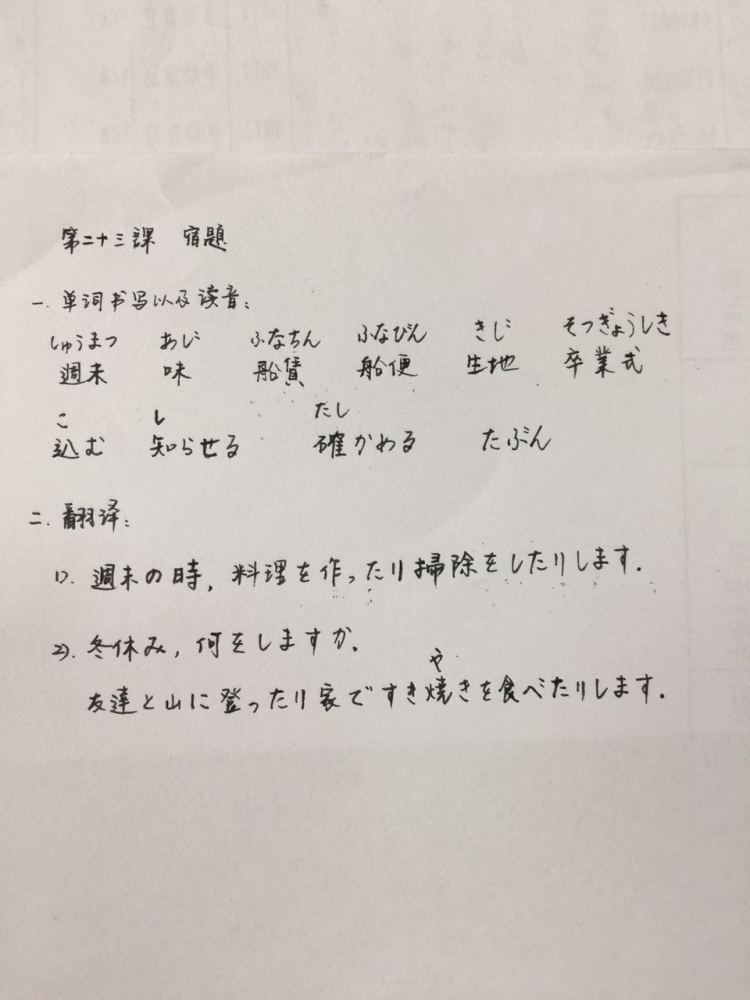 第二十三課 宿題
一. 单词书写以及读音:
しゅうまつ あじ ふなちん ふなびん きじ そつぎょうしき
週末 味 船賃 船便 生地 卒業式
こ し たし
込む 知らせる 確かめる たぶん
二. 翻译:
1). 週末の時, 料理を作ったり掃除をしたりします.
2). 冬休み, 何をしますか.
や
友達と山に登ったり家ですき焼きを食べたりします.